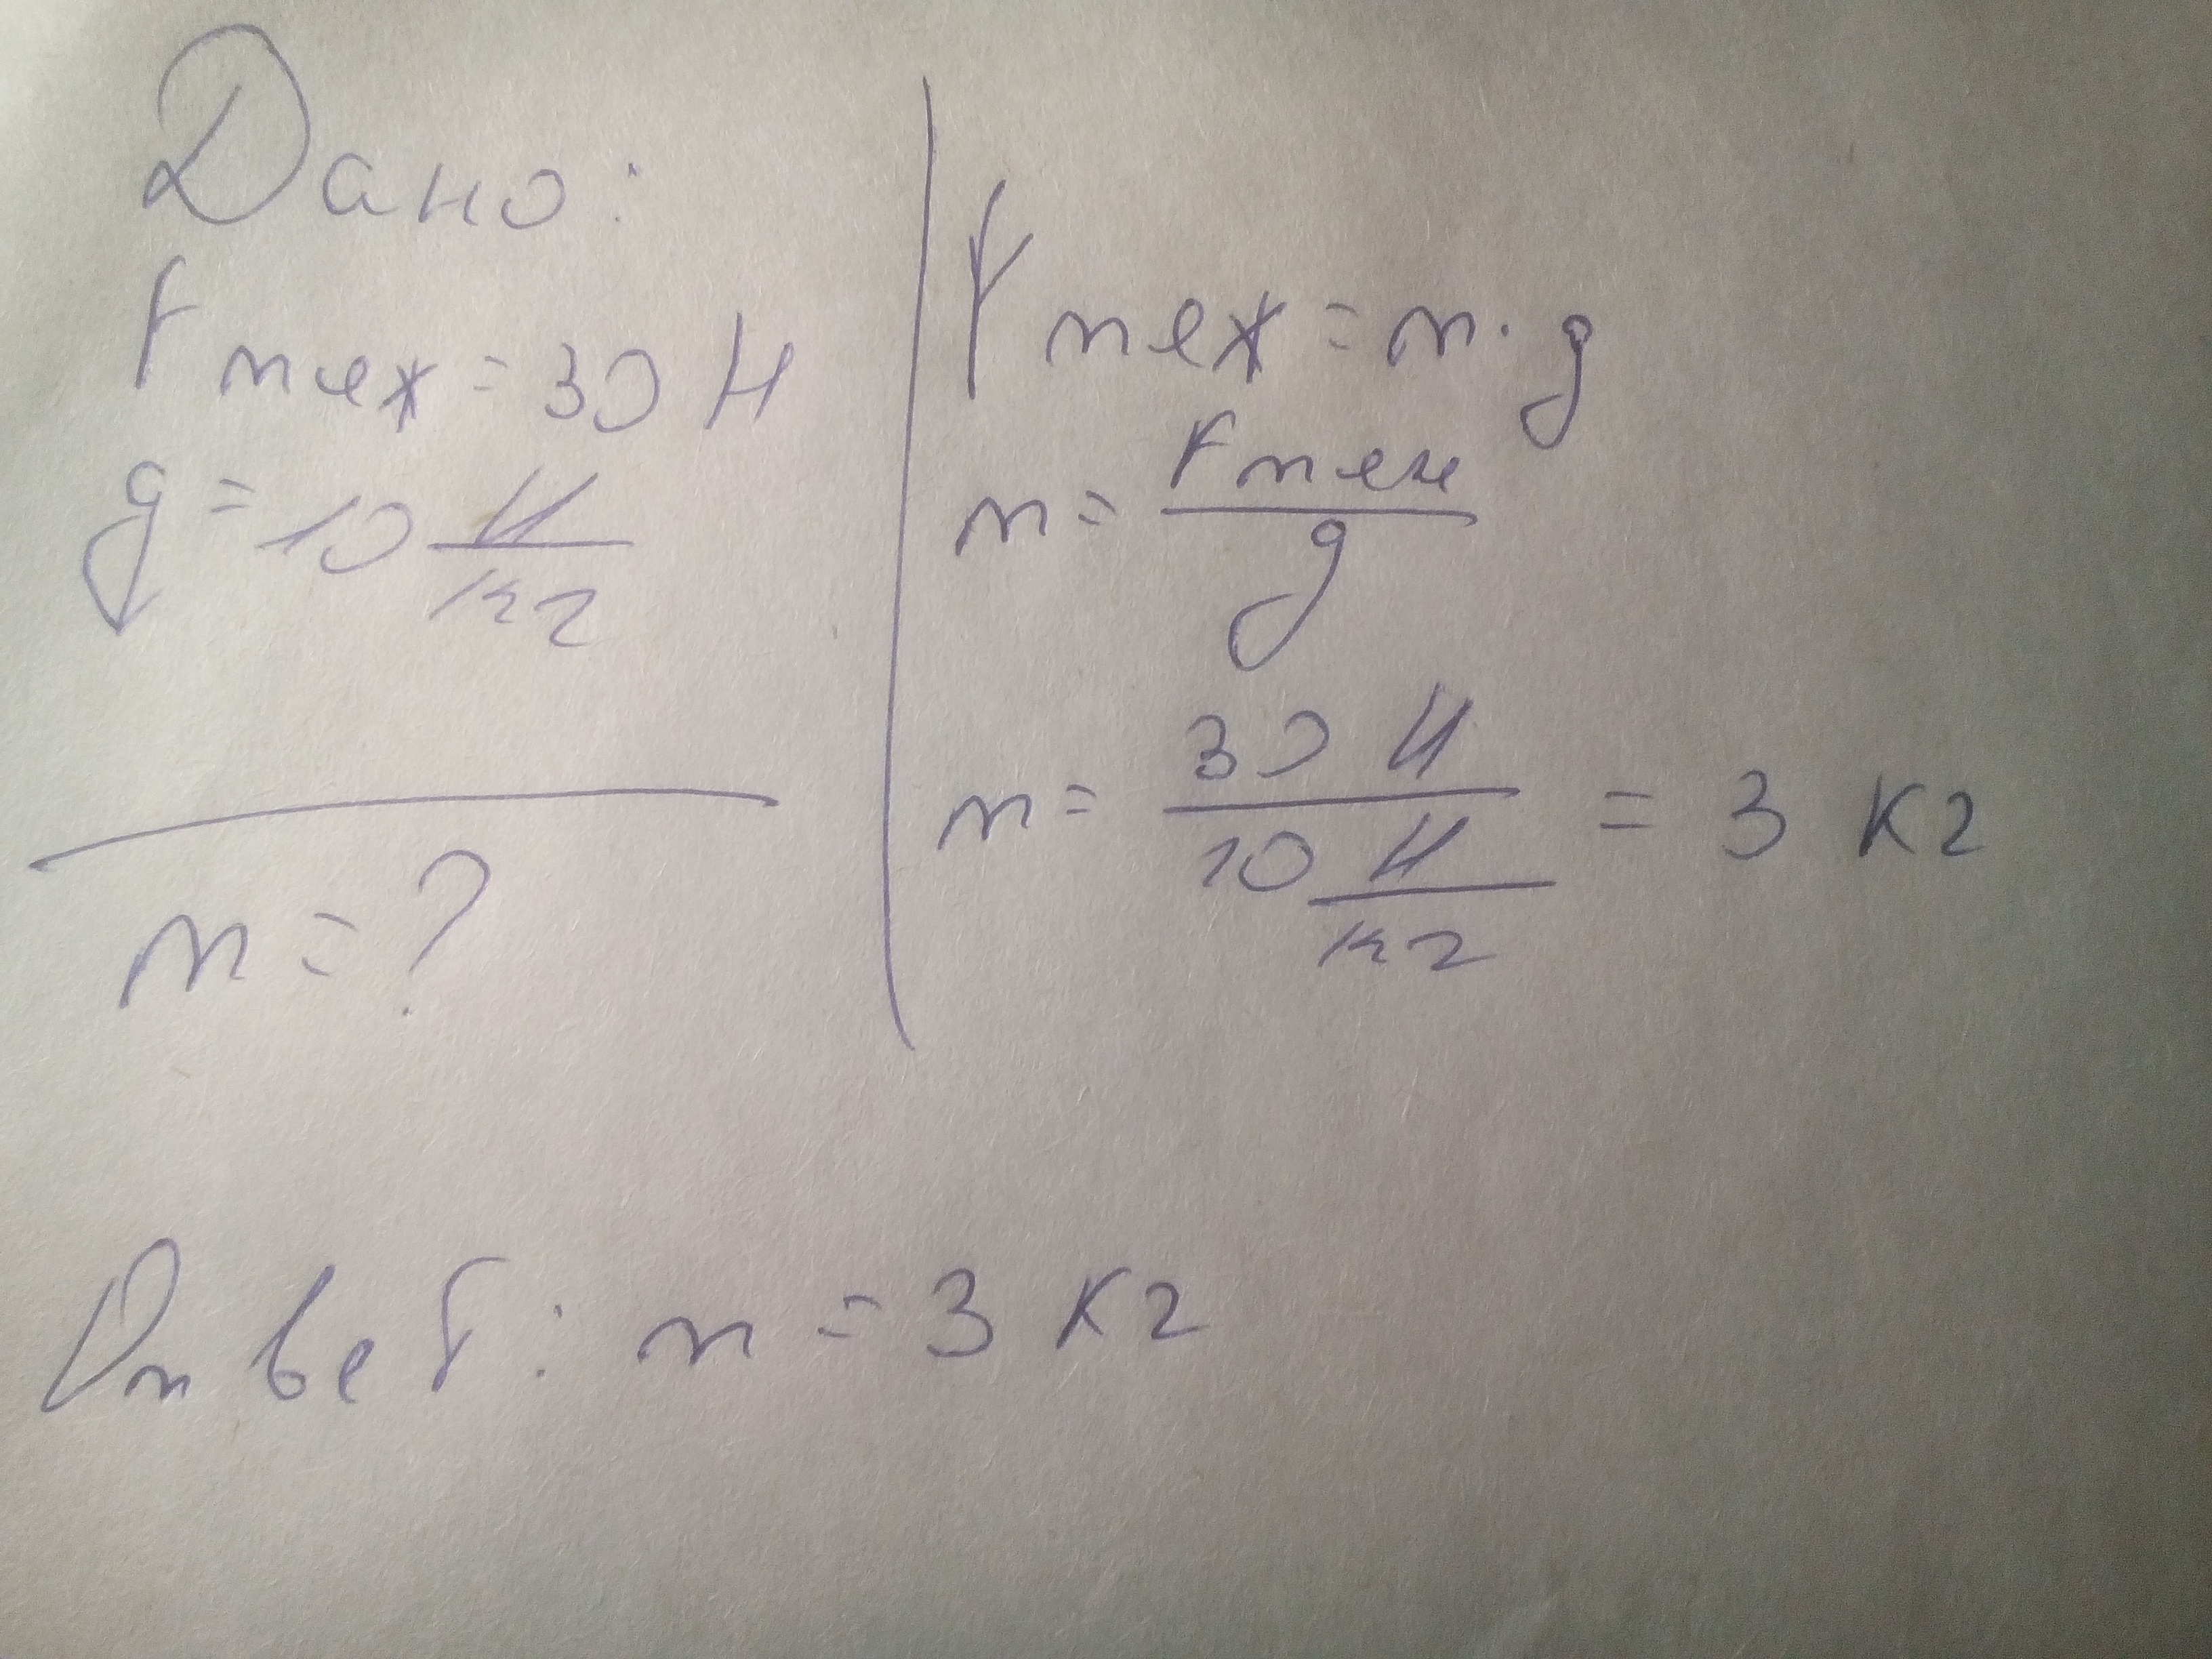 Дано:
Fтеж = 30 Н
g = 10 Н/кг
m = ?
Fтеж = m · g
m = Fтеж/g
m = 30 Н / 10 Н/кг = 3 кг
Ответ: m = 3 кг